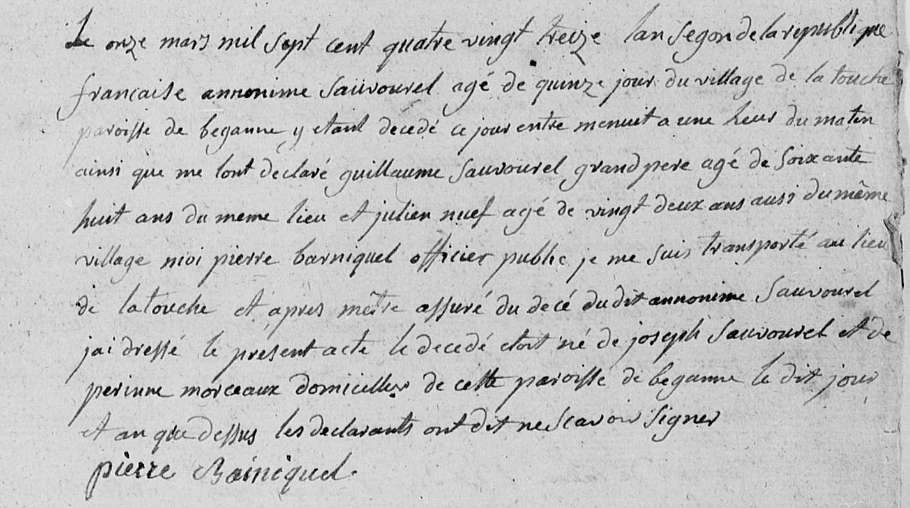 Le onze mars mil sept cent quatre vingt treize lan segon de la republique
française annonime Sauvourel agé de quinze jour du village de la touche
paroisse de beganne y etant decedé ce jour entre menuit a une heur du maten
ainsi que me lont declaré guillaume Sauvourel grand pere agé de soixante
huit ans du meme lieu et julien nuef agé de vingt deux ans ausi du même
village moi pierre barniquel officier public je me suis transporté au lieu
de latouche et apres mêtre assuré du decé du dit annonime Sauvourel
jai dressé le présent acte le decedé etoit né de joseph Sauvourel et de
perinne morceaux domicellés de cette paroisse de beganne le dit jour
et an que dessus les declarants ont dit ne scavoir signer
pierre Bainiquel